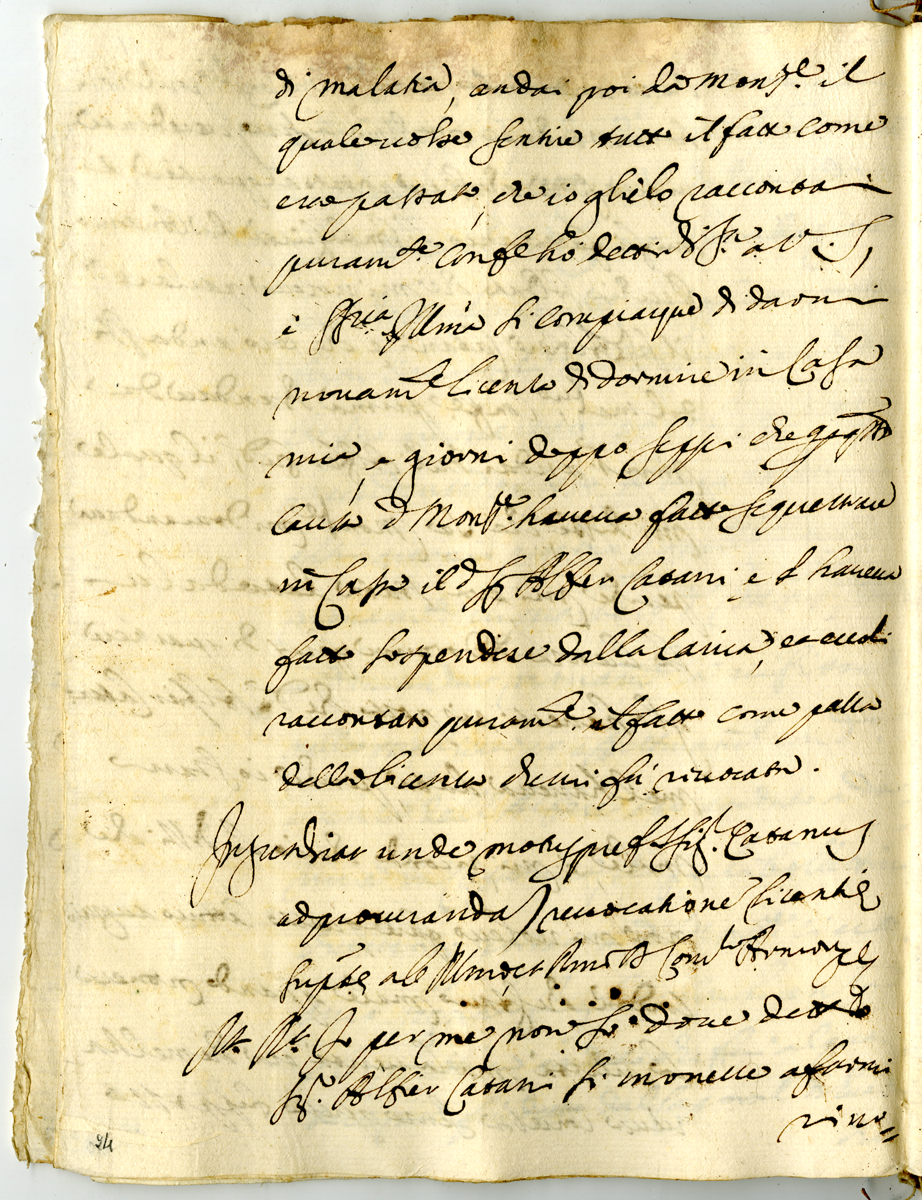 di malatia, andai poi da Monsre. il
quale volse sentire tutto il fatto come
era passato, che io glielo raccontai
puramte. come hò detto di sa. a V. S,
e S. Sria. Illma si compiacque di darmi
novamte licenza di dormire in Casa
mia, e giorni doppo seppi che
causa d Monsre. haveva fatto sequestrare
in Casa il d Sr Alfier Catani e l haveva
fatto sospendere dalla carica, et eccoli
raccontato puramte il fatto come passa
della licenza che mi fù rivocata.
Inter unde motus pref. Sigr. Catanus
ad procurandã revocationẽ licentiæ
supte ab Illmo, et Rmo D
Rt. Rt. Io per me non so dove detto
Sigr. Alfier Catani si movesse a farmi
rivo=
94